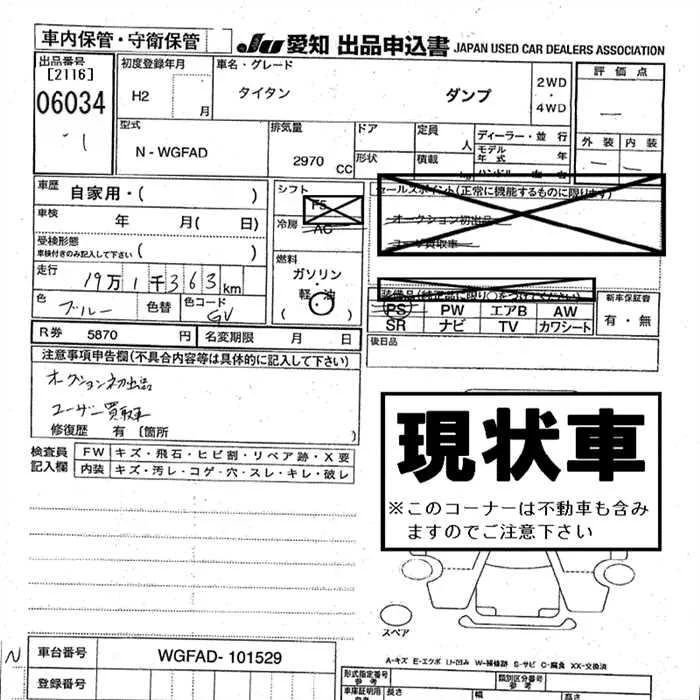 車内保管・守衛保管
JU 愛知 出品申込書 JAPAN USED CAR DEALERS ASSOCIATION
出品番号
[2116]
06034
-1
初度登録年月
H2 月
車名・グレード
タイタン ダンプ
2WD
・
4WD
評価点
—
外装 内装
— —
型式
N-WGFAD
排気量
2970 CC
ドア
形状
定員 人
積載 kg
ディーラー・並行
モデル年式 年
ハンドル 左 右
車歴 自家用・( )
車検 年 月( 日)
受検形態
車検付きのみ記入して下さい ( )
走行 19万1千363km
色 ブルー 色替 色コード GV
シフト
F5
冷房
AC
燃料
ガソリン
軽油
( )
セールスポイント(正常に機能するものに限ります)
オークション初出品
ユーザ買取車
装備品(純正品に限り○をつけてください)
PS PW エアB AW
SR ナビ TV カワシート
新車保証書
有・無
R券 5870 円 名変期限 月 日
後日品
注意事項申告欄(不具合内容等は具体的に記入して下さい)
オークション初出品
ユーザー買取車
修復歴 有 〔箇所 )
検査員記入欄
FW キズ・飛石・ヒビ割・リペア跡・X要
内装 キズ・汚レ・コゲ・穴・スレ・キレ・破レ
現状車
※このコーナーは不動車も含み
ますのでご注意下さい
スペア
A-キズ E-エクボ U-凹み W-補修跡 S-サビ C-腐食 XX-交換済
N
車台番号 WGFAD-101529
登録番号
形式指定番号
参考
類別区分番号
参考
車庫証明用
長さ 幅 高さ